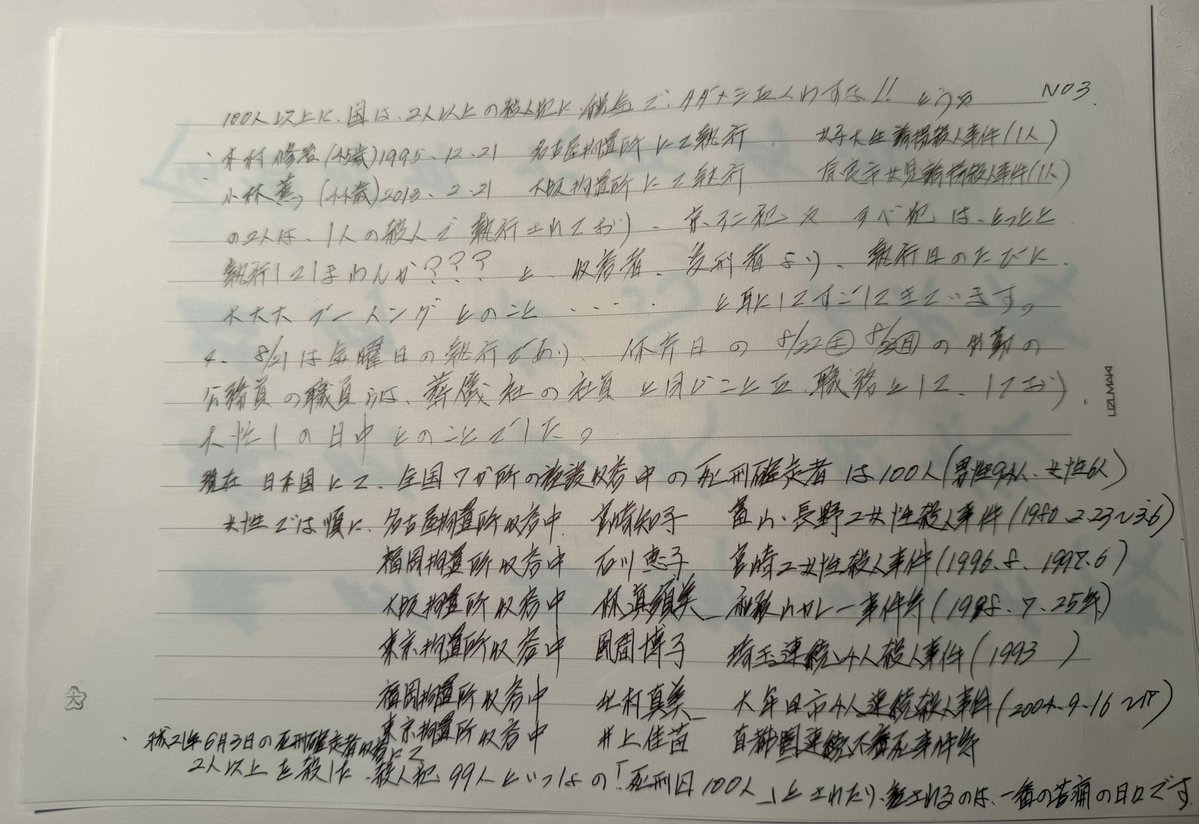 NO3.
100人以上に、国は、2人以上の殺人犯に
木村修治(45歳)1995.12.21 名古屋拘置所にて執行 女子大生誘拐殺人事件(1人)
小林薫(44歳)2013.2.21 大阪拘置所にて執行 奈良市女児誘拐殺人事件(1人)
の2人は、1人の殺人で執行されており、
執行してしまわんか??? と、収容者、受刑者より、執行日のたびに、
大大大ブーイングとのこと ‥‥‥ と耳にしてすごしてきています。
4、8/21は金曜日の執行であり、休庁日の8/22土 8/23日の出勤の
公務員の職員らは、葬儀社の社員と同じことを職務として、してお
の日中とのことでした。
現在 日本国にて、全国7か所の施設収容中の死刑確定者は100人(男性94人、女性6人)
女性では順に、名古屋拘置所収容中 宮崎知子 富山・長野2女性殺人事件(1980.2.23〜3.6)
福岡拘置所収容中 石川恵子 宮崎2女性殺人事件(1996.8、1997.6)
大阪拘置所収容中 林眞須美 和歌山カレー事件等(1998.7.25等)
東京拘置所収容中 風間博子 埼玉連続4人殺人事件(1993 )
福岡拘置所収容中 北村真美 大牟田市4人連続殺人事件(2004.9.16〜17)
東京拘置所収容中 井上佳苗 首都圏連続不審死事件等
平成21年6月3日の死刑確定者収容にて
2人以上を殺した殺人犯99人といっしょの「死刑囚100人」とされたり、されるのは、一番の苦痛の日々です
UZUMAKI